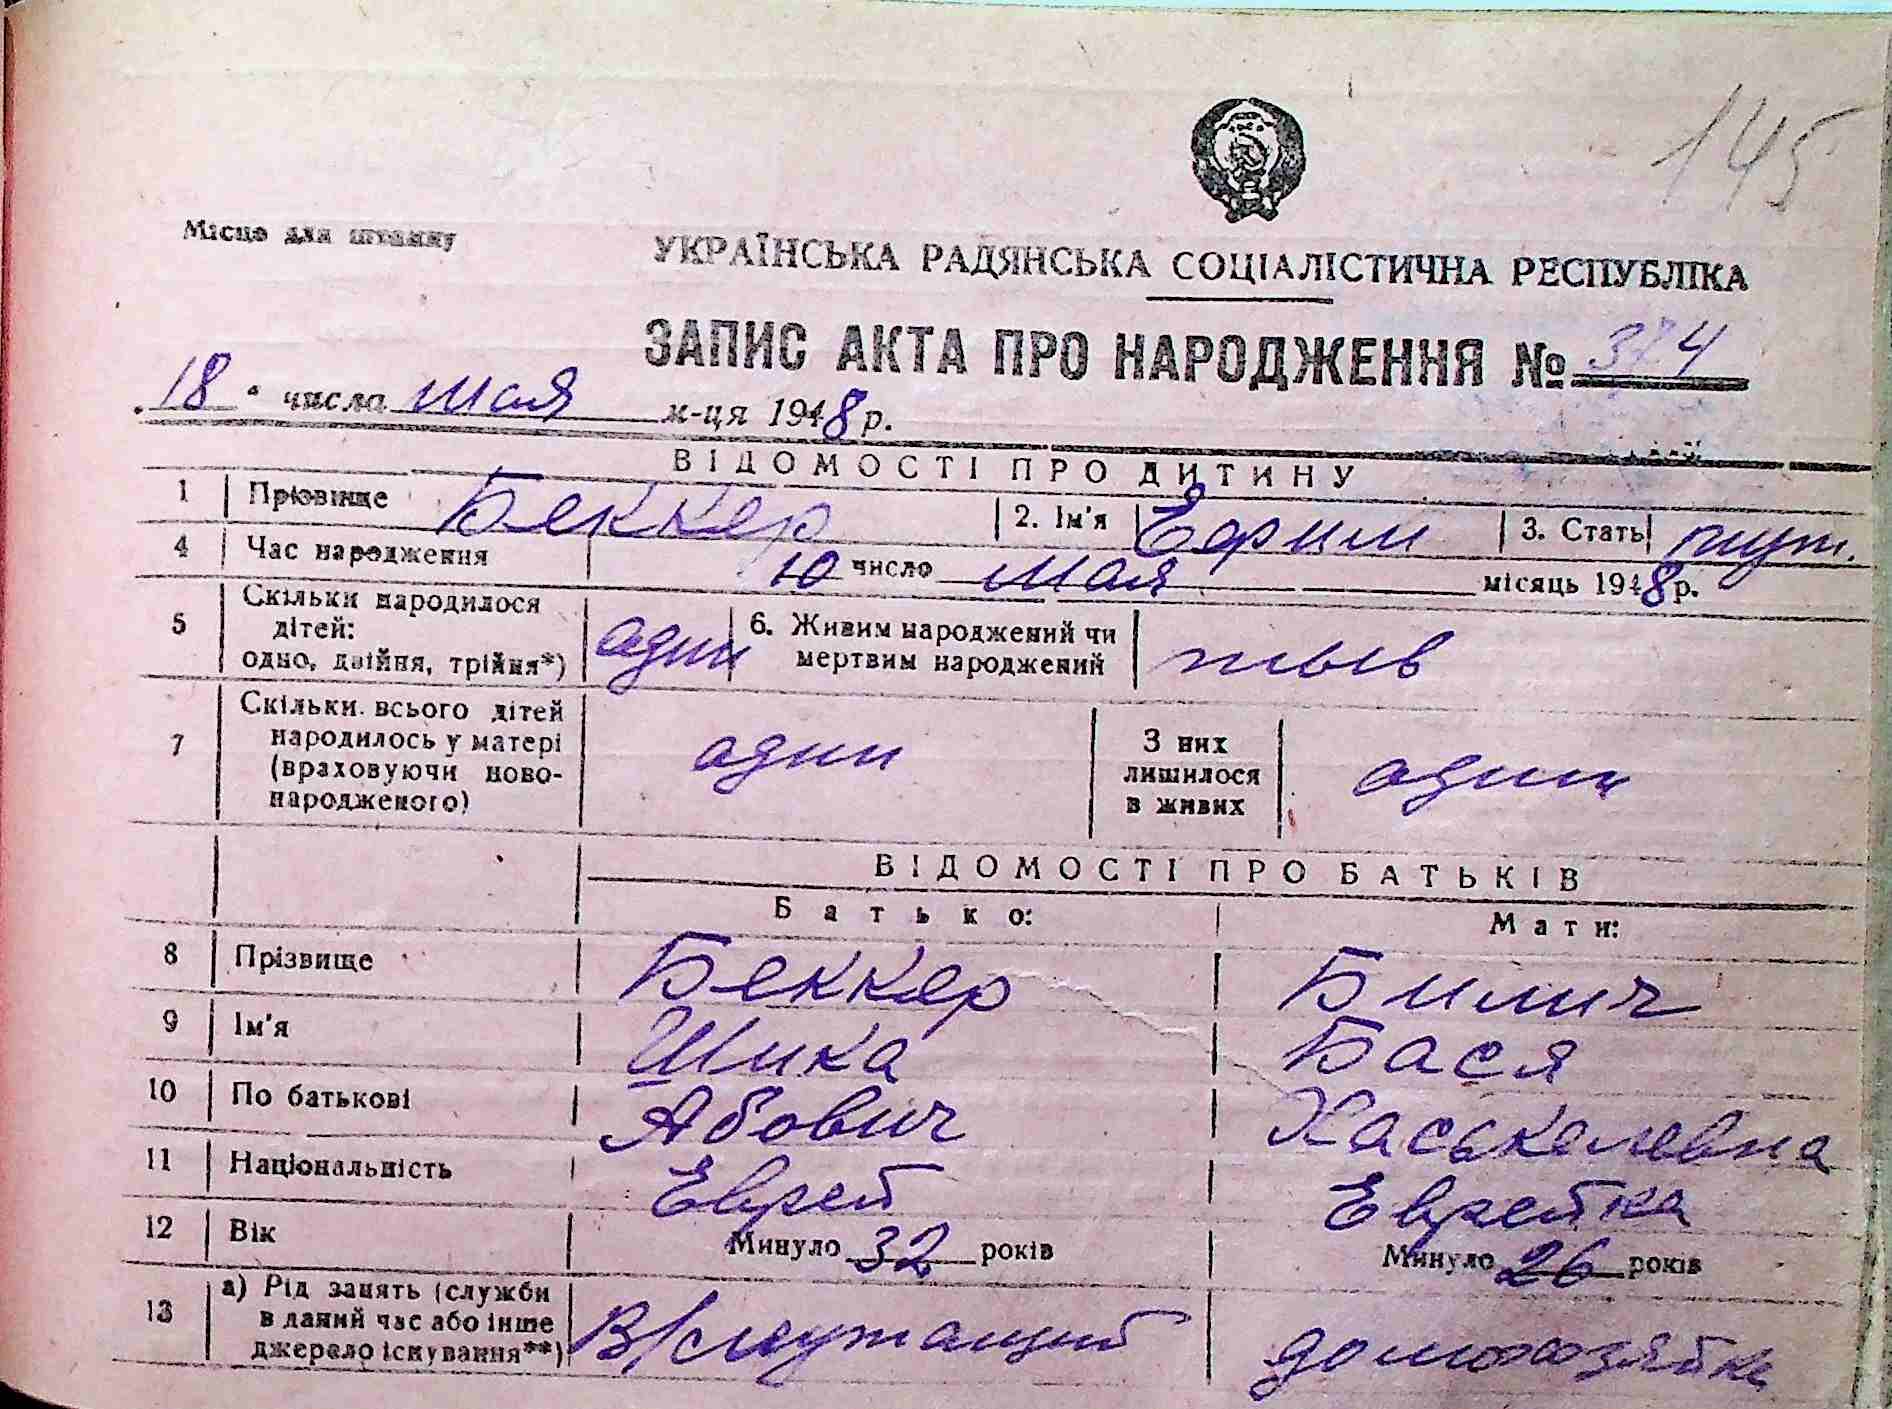 145
Місце для штампу
УКРАЇНСЬКА РАДЯНСЬКА СОЦІАЛІСТИЧНА РЕСПУБЛІКА
ЗАПИС АКТА ПРО НАРОДЖЕННЯ № 374
18 числа мая м-ця 1948 р.
ВІДОМОСТІ ПРО ДИТИНУ
1 Прізвище Беккер 2. Ім'я Ефим 3. Стать муж.
4 Час народження 10 число мая місяць 1948 р.
5 Скільки народилося дітей: одно, двійня, трійня*) один 6. Живим народжений чи мертвим народжений жыв
7 Скільки всього дітей народилось у матері (враховуючи ново-народженого) один З них лишилося в живих один
ВІДОМОСТІ ПРО БАТЬКІВ
Батько: Мати:
8 Прізвище Беккер Билич
9 Ім'я Шика Бася
10 По батькові Абович Хаськелевна
11 Національність Еврей Еврейка
12 Вік Минуло 32 років Минуло 26 років
13 а) Рід занять (служби в даний час або інше джерело існування**) В/служащий домохозяйка